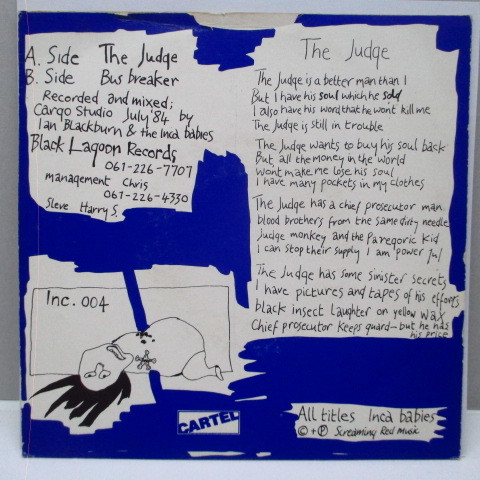 A. Side The Judge
B. Side Bus breaker
Recorded and mixed;
Cargo Studio July '84 by
Ian Blackburn & the Inca babies
Black Lagoon Records
061-226-7707
management Chris
061-226-4330
Sleve Harry S.
Inc. 004
CARTEL
The Judge
The Judge is a better man than I
But I have his soul which he sold
I also have his word that he wont kill me
The Judge is still in trouble
The Judge wants to buy his soul back
But all the money in the world
Wont make me lose his soul
I have many pockets in my clothes
The Judge has a chief prosecutor man
blood brothers from the same dirty needle
Judge monkey and the Paregoric Kid
I can stop their supply I am 'power ful
The Judge has some sinister secrets
I have pictures and tapes of his efforts
black insect laughter on yellow wax
Chief prosecutor keeps guard - but he has
his price
All titles Inca babies
© + ℗ Screaming Red Music